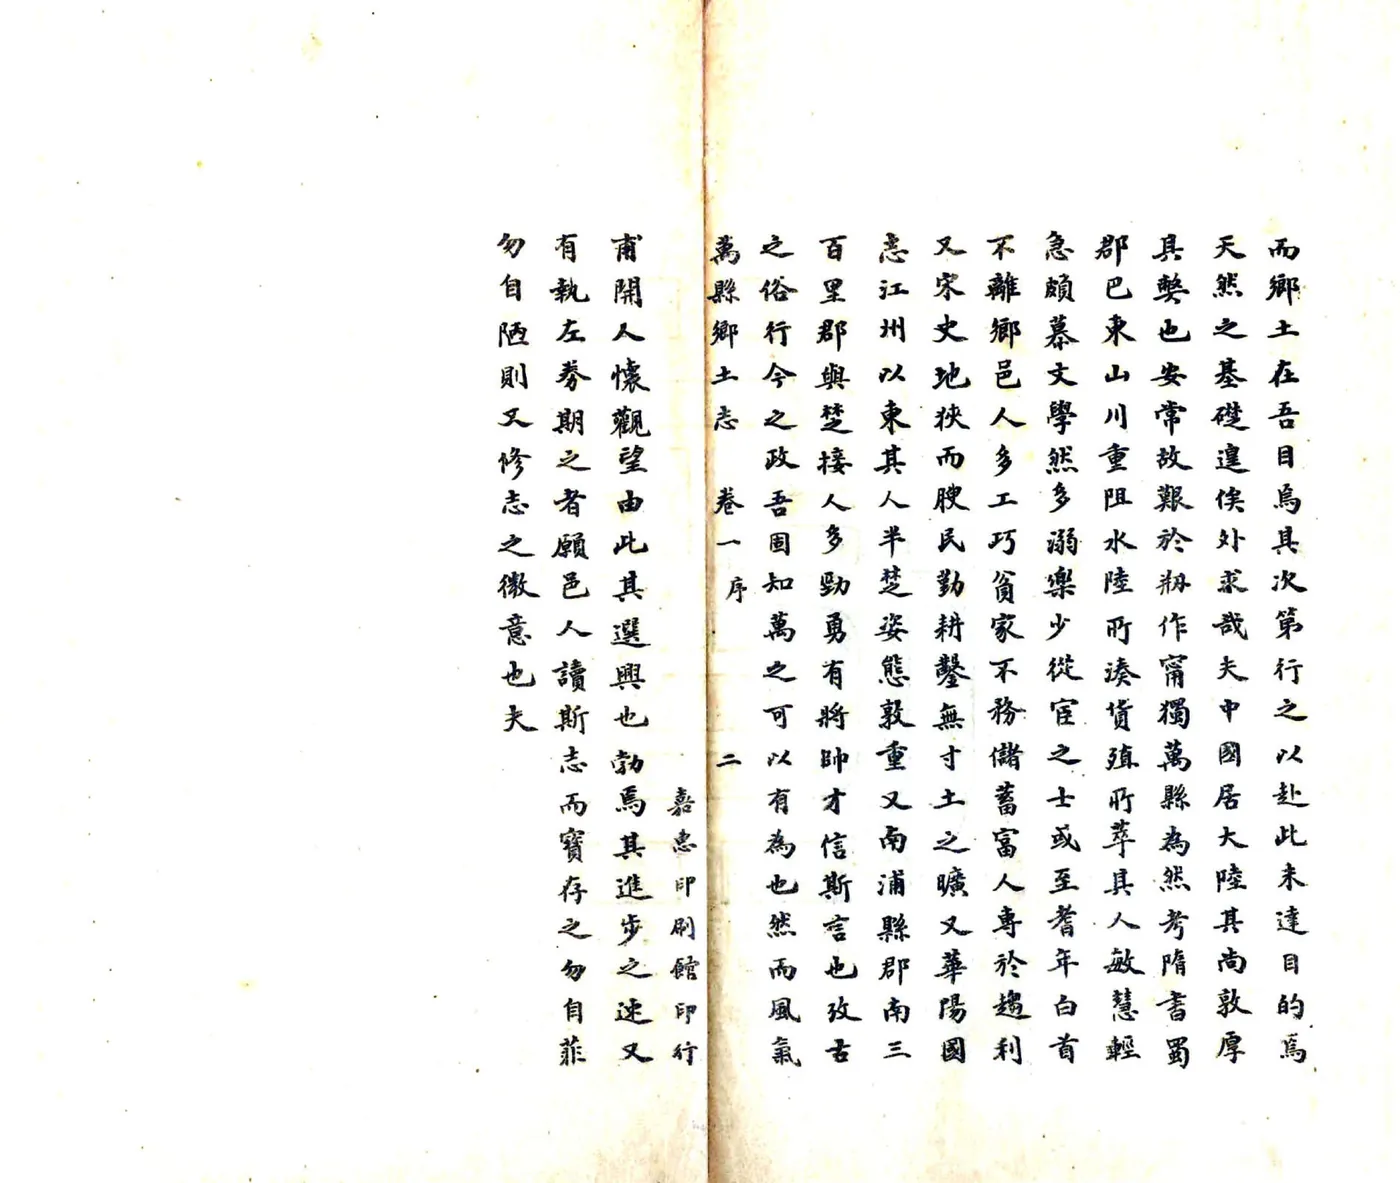 而鄉土在吾目烏其次第行之以赴此未達目的焉
天然之基礎遑俟外求哉夫中國居大陸其尚敦厚
具弊也安常故艱於刱作甯獨萬縣為然考隋書蜀
郡巴東山川重阻水陸所湊貨殖所萃具人敏慧輕
急頗慕文學然多溺樂少從宦之士或至耆年白首
不離鄉邑人多工巧貧家不務儲蓄富人專於趨利
又宋史地狹而腴民勤耕鑿無寸土之曠又華陽國
志江州以東其人半楚姿態敦重又南浦縣郡南三
百里郡與楚接人多勁勇有將帥才信斯言也攷古
之俗行今之政吾固知萬之可以有為也然而風氣
萬縣鄉土志 卷一 序 二
嘉惠印刷館印行
甫開人懷觀望由此其選興也勃焉其進步之速又
有執左券期之者願邑人讀斯志而寶存之勿自菲
勿自陋則又修志之微意也夫